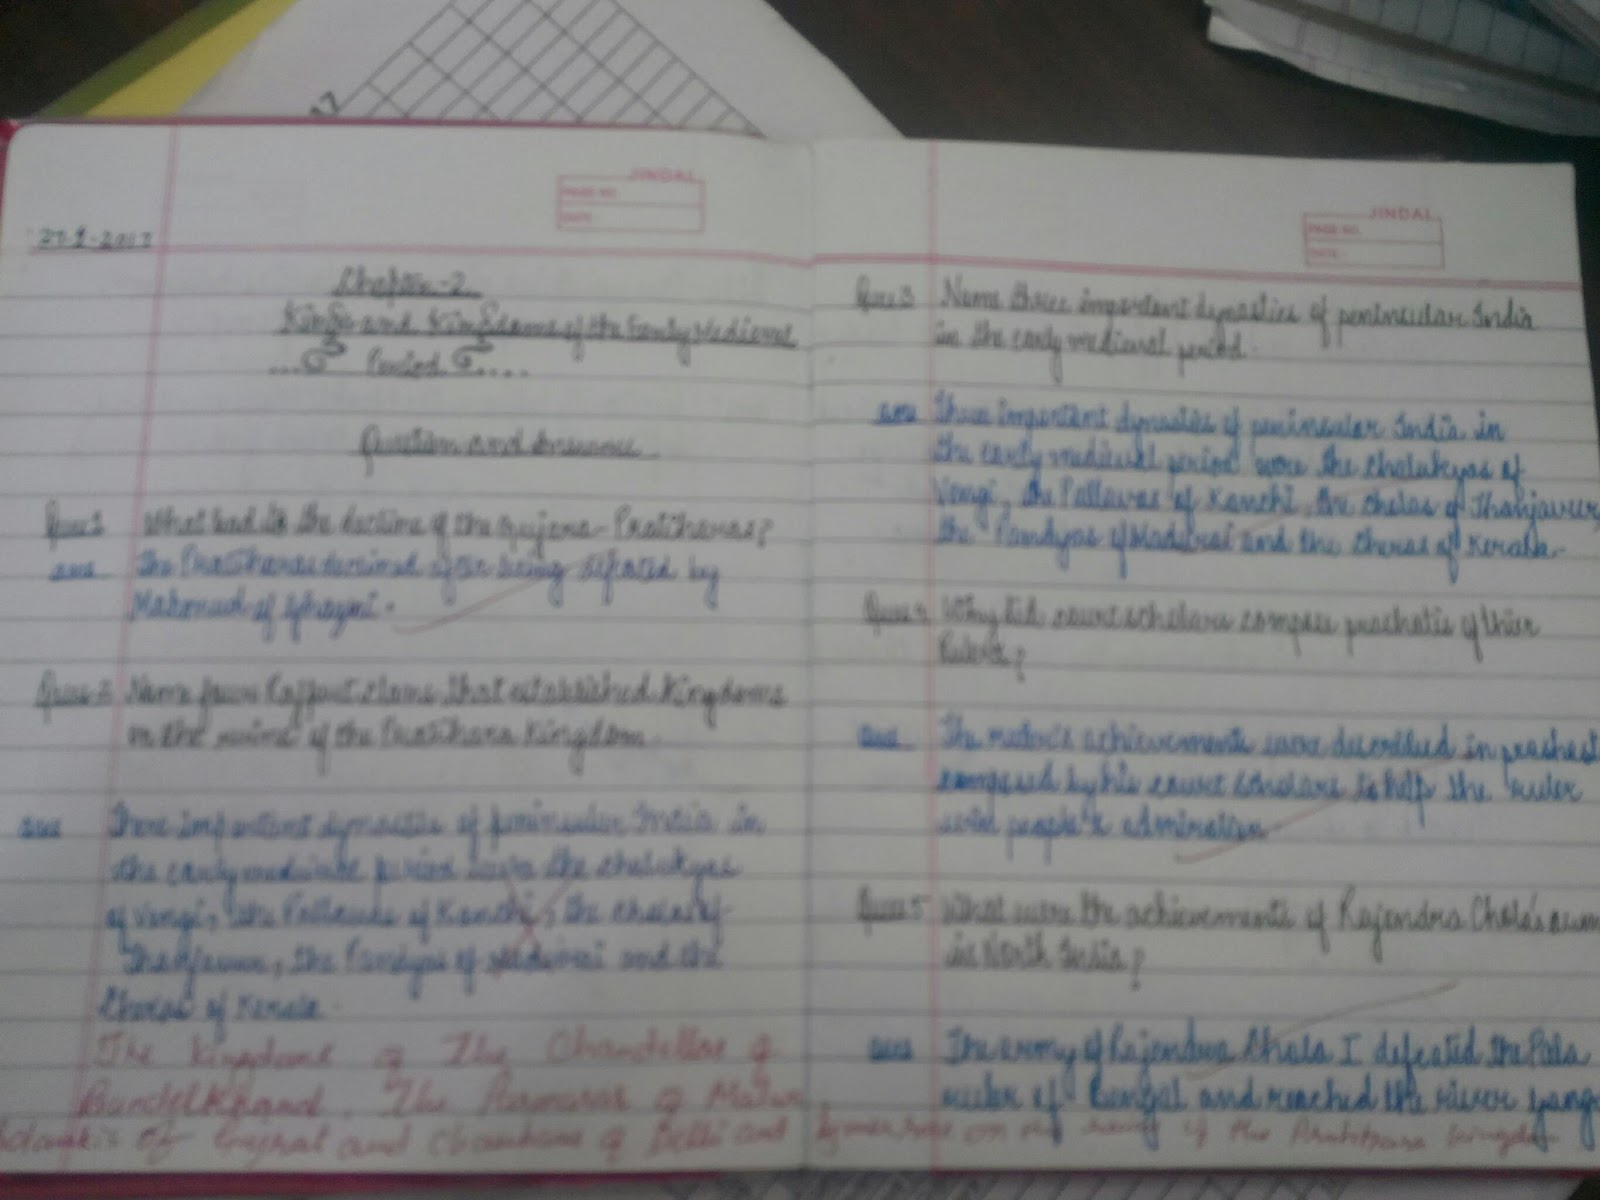 17
JINDAL
PAGE NO.
DATE
27-9-2017
Chapter-2
Kings and Kingdoms of the Early Medieval
Period
Question and Answers
Ques 1 What led to the decline of the Gujara-Pratiharas?
ans The Pratiharas declined after being defeated by
Mahmud of Ghazni.
Ques 2 Name four Rajput clans that established Kingdoms
on the ruins of the Pratihara Kingdom.
ans Three important dynasties of peninsular India in
the early period were the chalukyas
of Vengi, the Pallavas of Kanchi, the cholas of
Thanjavur, the Pandyas of Madurai and the
Cheras of Kerala.
The Kingdoms of The Chandellas of
Bundelkhand, The Parmaras of
Solankis of Gujrat and Chauhans of Delhi and Ajmer on the ruins of the Pratihara kingdom
JINDAL
PAGE NO.
DATE
Ques 3 Name three important dynasties of peninsular India
in the early medieval period.
ans Three important dynasties of peninsular India in
the early medieval period were the Chalukyas of
Vengi, the Pallavas of Kanchi, the cholas of Thanjavur,
the Pandyas of Madurai and the cheras of Kerala.
Ques 4 Why did court scholars compose of
Rulers?
ans The achievements were described in
composed by his court scholars to help the ruler
people's admiration
Ques 5 What were the achievements of Rajendra Chola's
in North India?
ans The army of Rajendra Chola I defeated the Pala
ruler of Bengal and reached the river